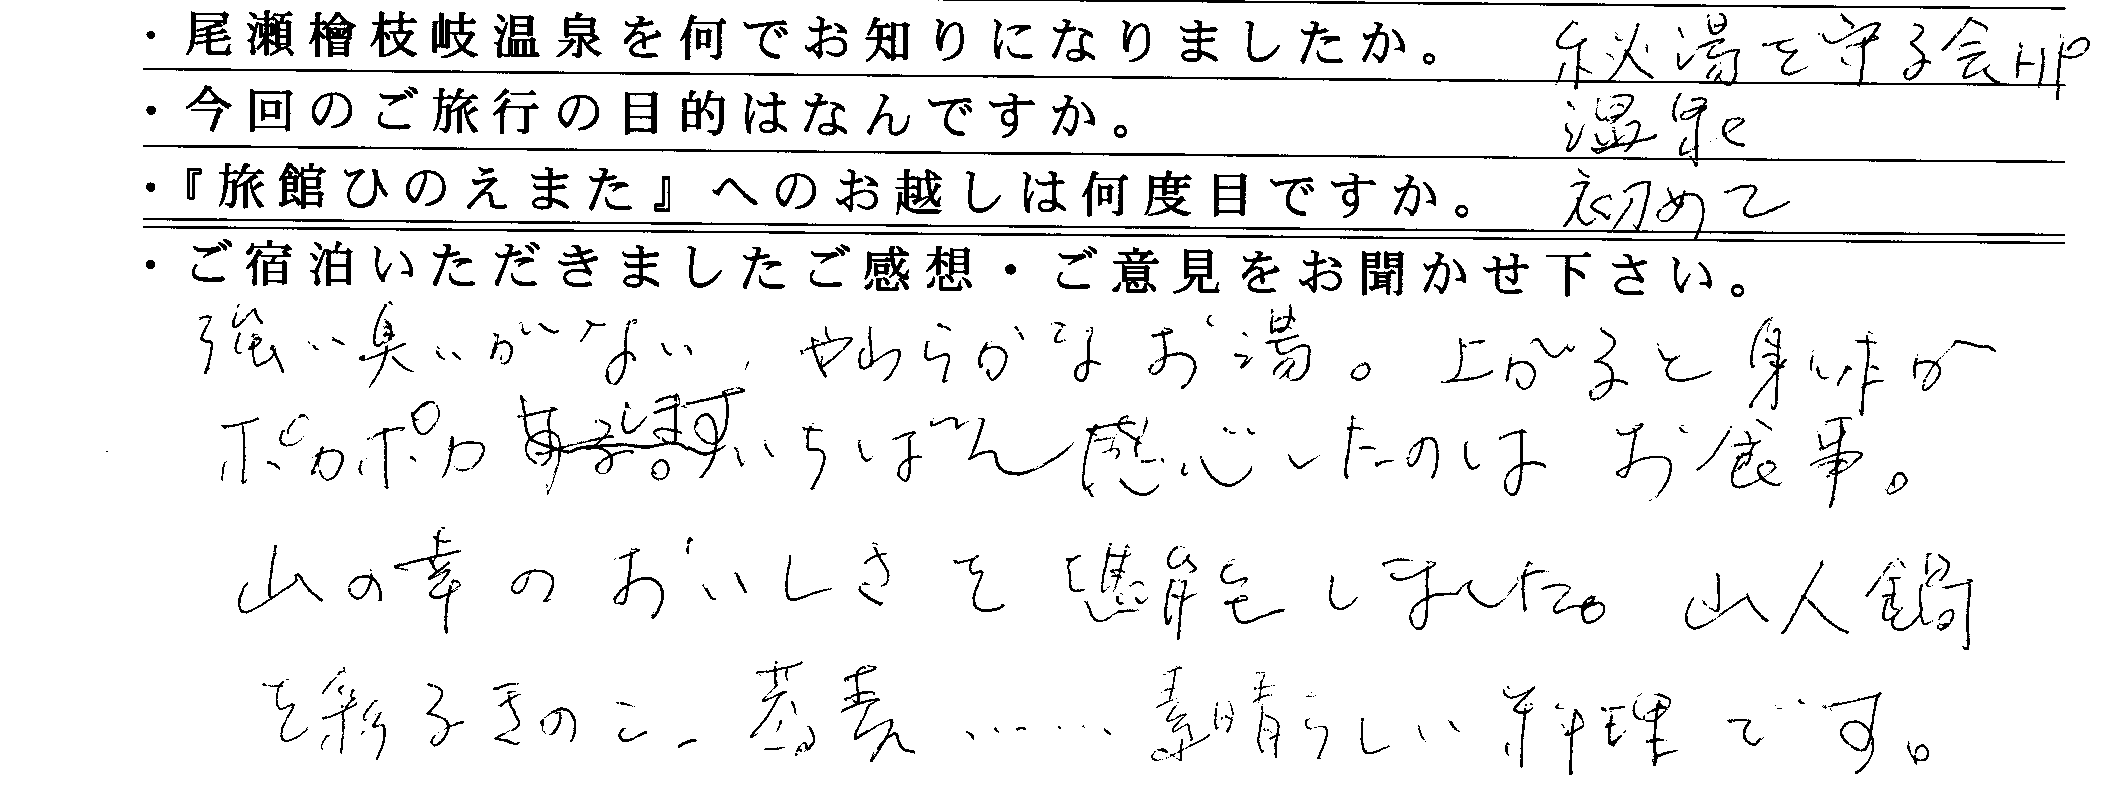 ・尾瀬檜枝岐温泉を何でお知りになりましたか。 秘湯を守る会HP
・今回のご旅行の目的はなんですか。 温泉
・『旅館ひのえまた』へのお越しは何度目ですか。 初めて
・ご宿泊いただきましたご感想・ご意見をお聞かせ下さい。
強い臭いがない、やわらかなお湯。上がると身体が
ポカポカ します。いちばん感心したのはお食事。
山の幸のおいしさを堪能しました。山人鍋
を彩るきのこ、蕎麦……素晴らしい料理です。